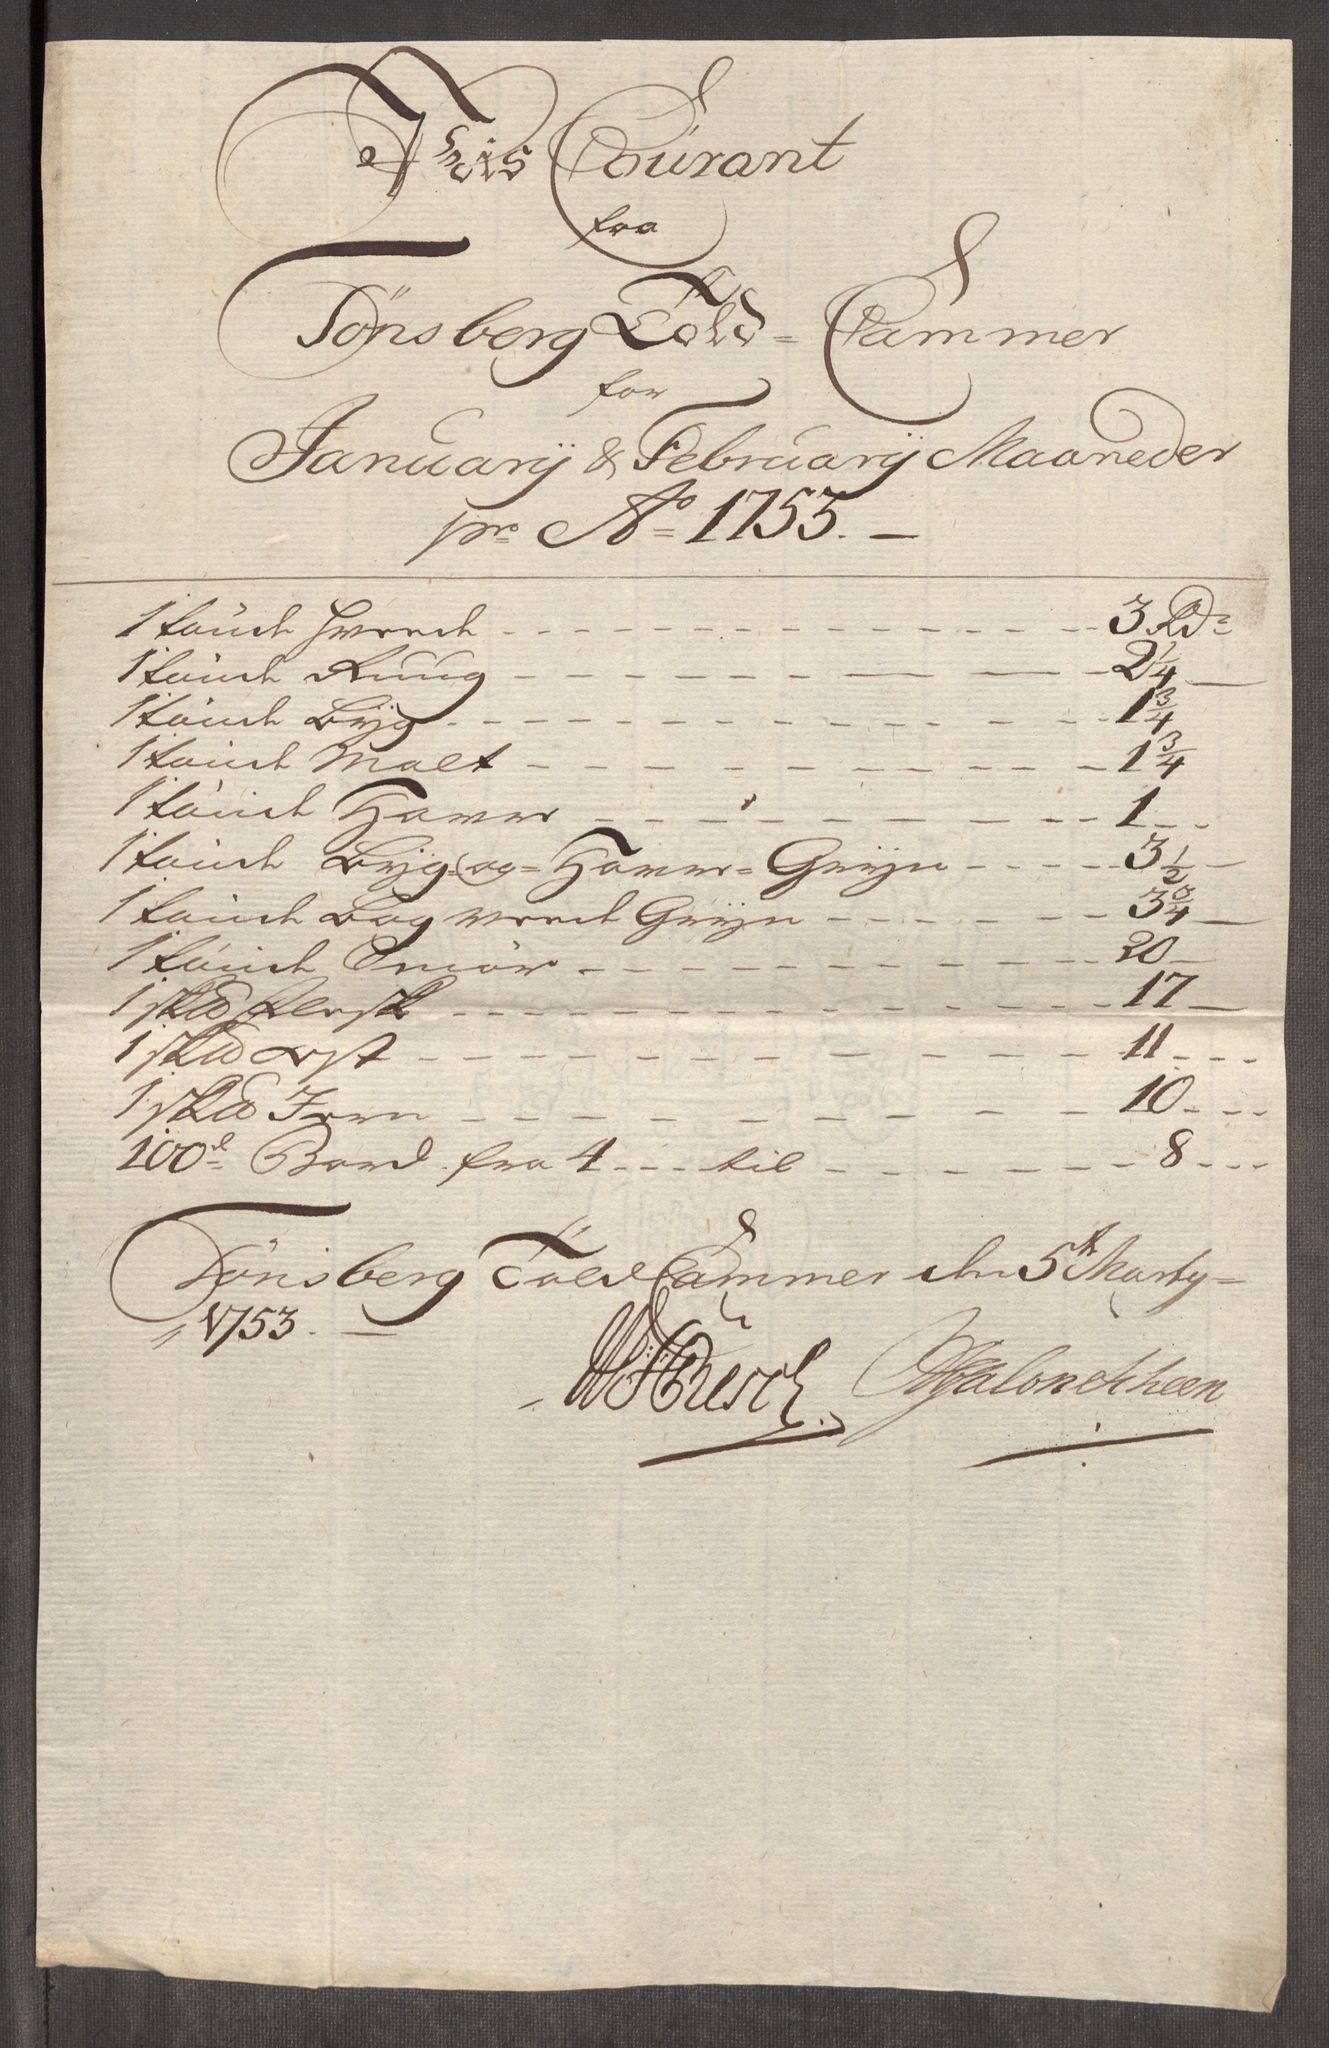 Priis Courant
fra
Tönsberg Told=Cammer
for
Januarij & Februarij Maaneder
pro Ao 1753. —
1 tönde Hvede 3 Rd
1 tönde Rug 2 1/4
1 tönde Byg 1 3/4
1 tönde Malt 1 3/4
1 tönde Haver 1
1 tönde Byg= og= Haver= Gryn 3 1/2
1 tönde Bog vede Gryn 3 3/4
1 tönde Smör 20
1 sk℔ Flesk 17
1 sk℔ Ost 11
1 sk℔ Jern 10
100de Bord fra 4 til 8
Tönsberg Told Cammer den 5te Marty
1753. —